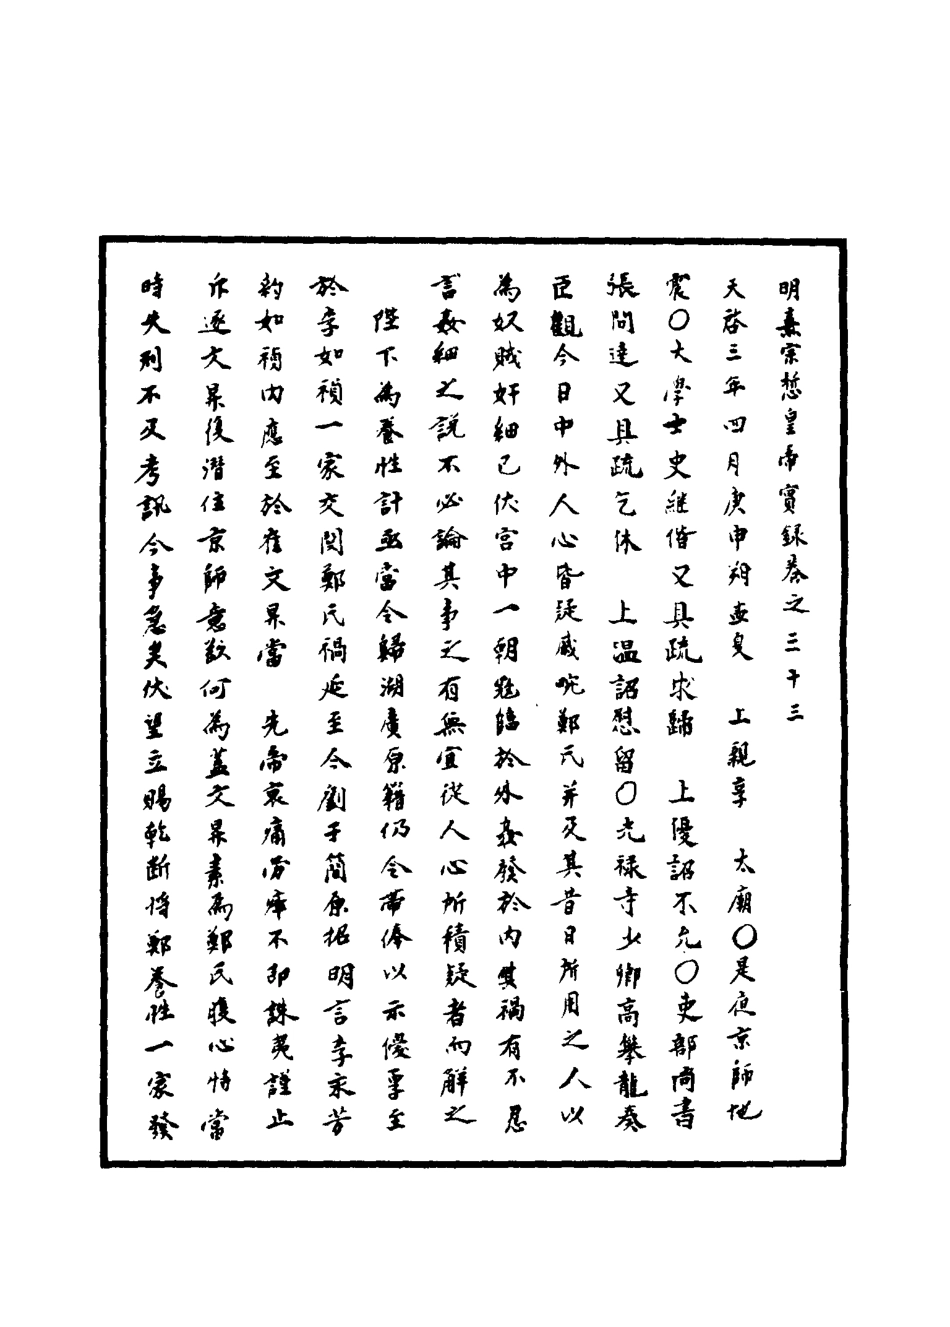 明熹宗悊皇帝實録卷之三十三
天啓三年四月庚申朔孟夏　上親享　太廟〇是夜京師地
震〇大學士史継偕又具疏求歸　上優詔不允〇吏部尚書
張問達又具疏乞休　上温詔慰留〇光禄寺少卿高舉龍奏
臣觀今日中外人心皆疑戚畹鄭氏并及其昔日所用之人以
為奴賊奸細已伏宮中一朝冦臨於外姦發於内其禍有不忍
言姦細之說不必論其事之有無宜從人心所積疑者而解之
陛下為養性計亟當令歸湖廣原籍仍令帶俸以示優厚至
於李如禎一家交関鄭氏禍延至今劉于簡原招明言李永芳
約如禎内應至於崔文昇當　先帝哀痛勞瘁不即誅夷謹止
斥逐文昇復潛住京師意欲何為盖文昇素為鄭氏腹心特當
時失刑不及考訊今事急矣伏望立賜乾断将鄭養性一家發